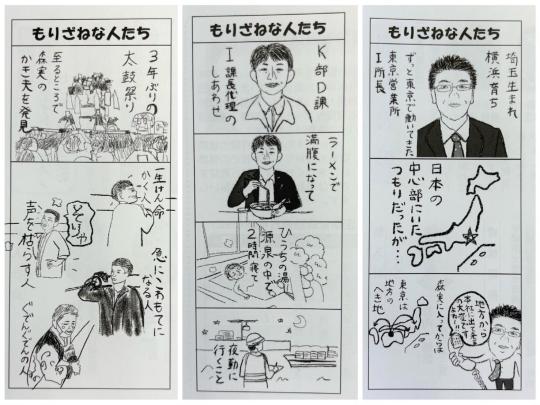 もりざねな人たち
3年ぶりの
太鼓祭り
至るところで
森実の
かき夫を発見
一生けん命
かく人
そりゃ
声を枯らす人
急にこわもてに
なる人
ぐでんぐでんの人
もりざねな人たち
K部D課
I課長代理の
しあわせ
ラーメンで
満腹になって
ひうちの湯
源泉の中で
2時間寝て
夜勤に
行くこと
もりざねな人たち
埼玉生まれ
横浜育ち
ずっと東京で働いてきた
東京営業所
I所長
日本の
中心部にいた
つもりだったが…
森実に入ってからは
地方から
本社に出て来る
東京は
地方の
へき地